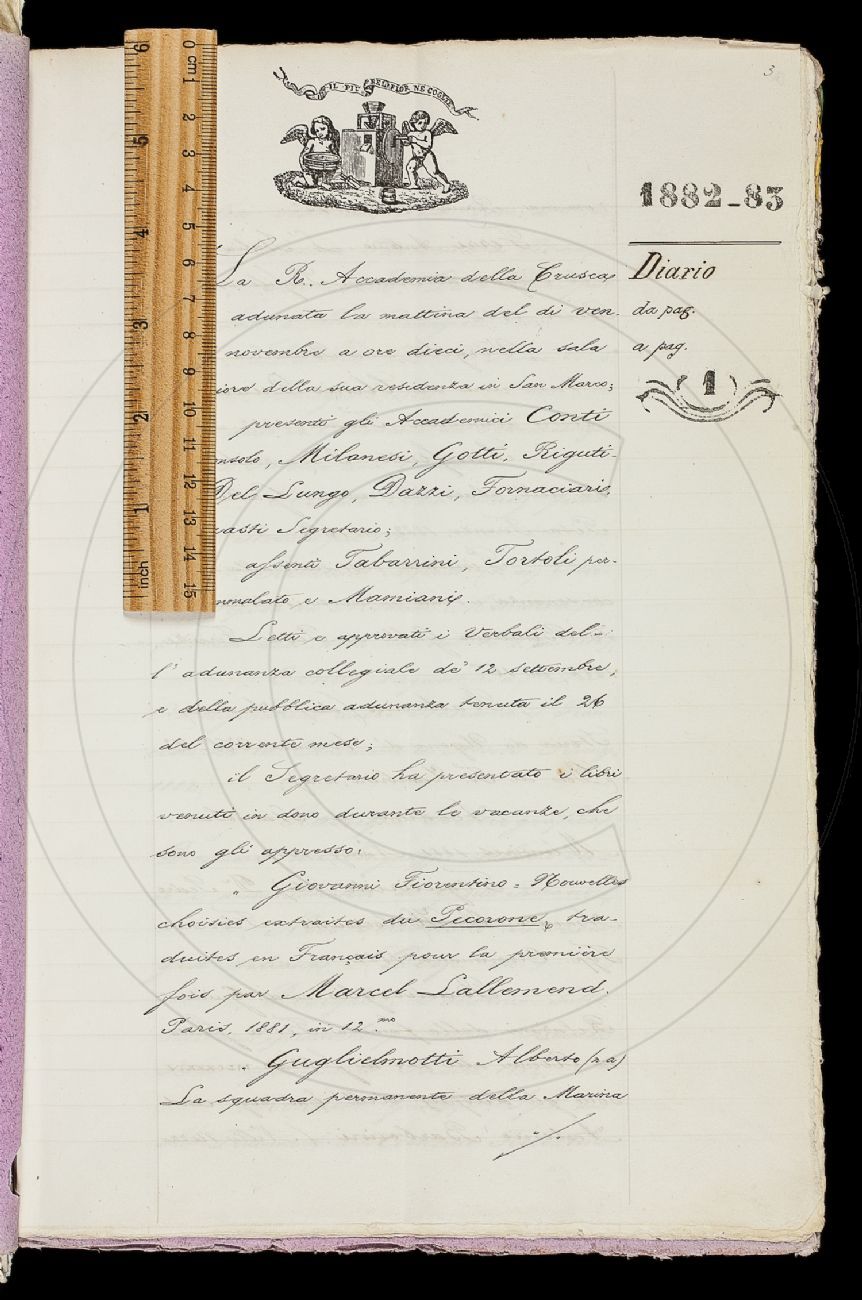 IL PIÙ BEL FIOR NE COGLIE
3
1882-83
Diario
da pag.
a pag.
1
La R. Accademia della Crusca,
adunata la mattina del dì ven-
novembre a ore dieci, nella sala
iore della sua residenza in San Marco;
presenti gli Accademici Conti
onsolo, Milanesi, Gotti, Riguti-
Del Lungo, Dazzi, Fornaciari,
asti Segretario;
assenti Tabarrini, Tortoli per-
mmalato, e Mamiani.
Letti e approvati i Verbali del-
l'adunanza collegiale de' 12 settembre,
e della pubblica adunanza tenuta il 26
del corrente mese;
il Segretario ha presentato i libri
venuti in dono durante le vacanze, che
sono gli appresso:
Giovanni Fiorentino = Nouvelles
choisies extraites du Pecorone, tra-
duites en Français pour la première
fois par Marcel Lallemend.
Paris, 1881, in 12.mo
Guglielmotti Alberto (P. a)
La squadra permanente della Marina
./.
inch 1 2 3 4 5 6
0 cm 1 2 3 4 5 6 7 8 9 10 11 12 13 14 15